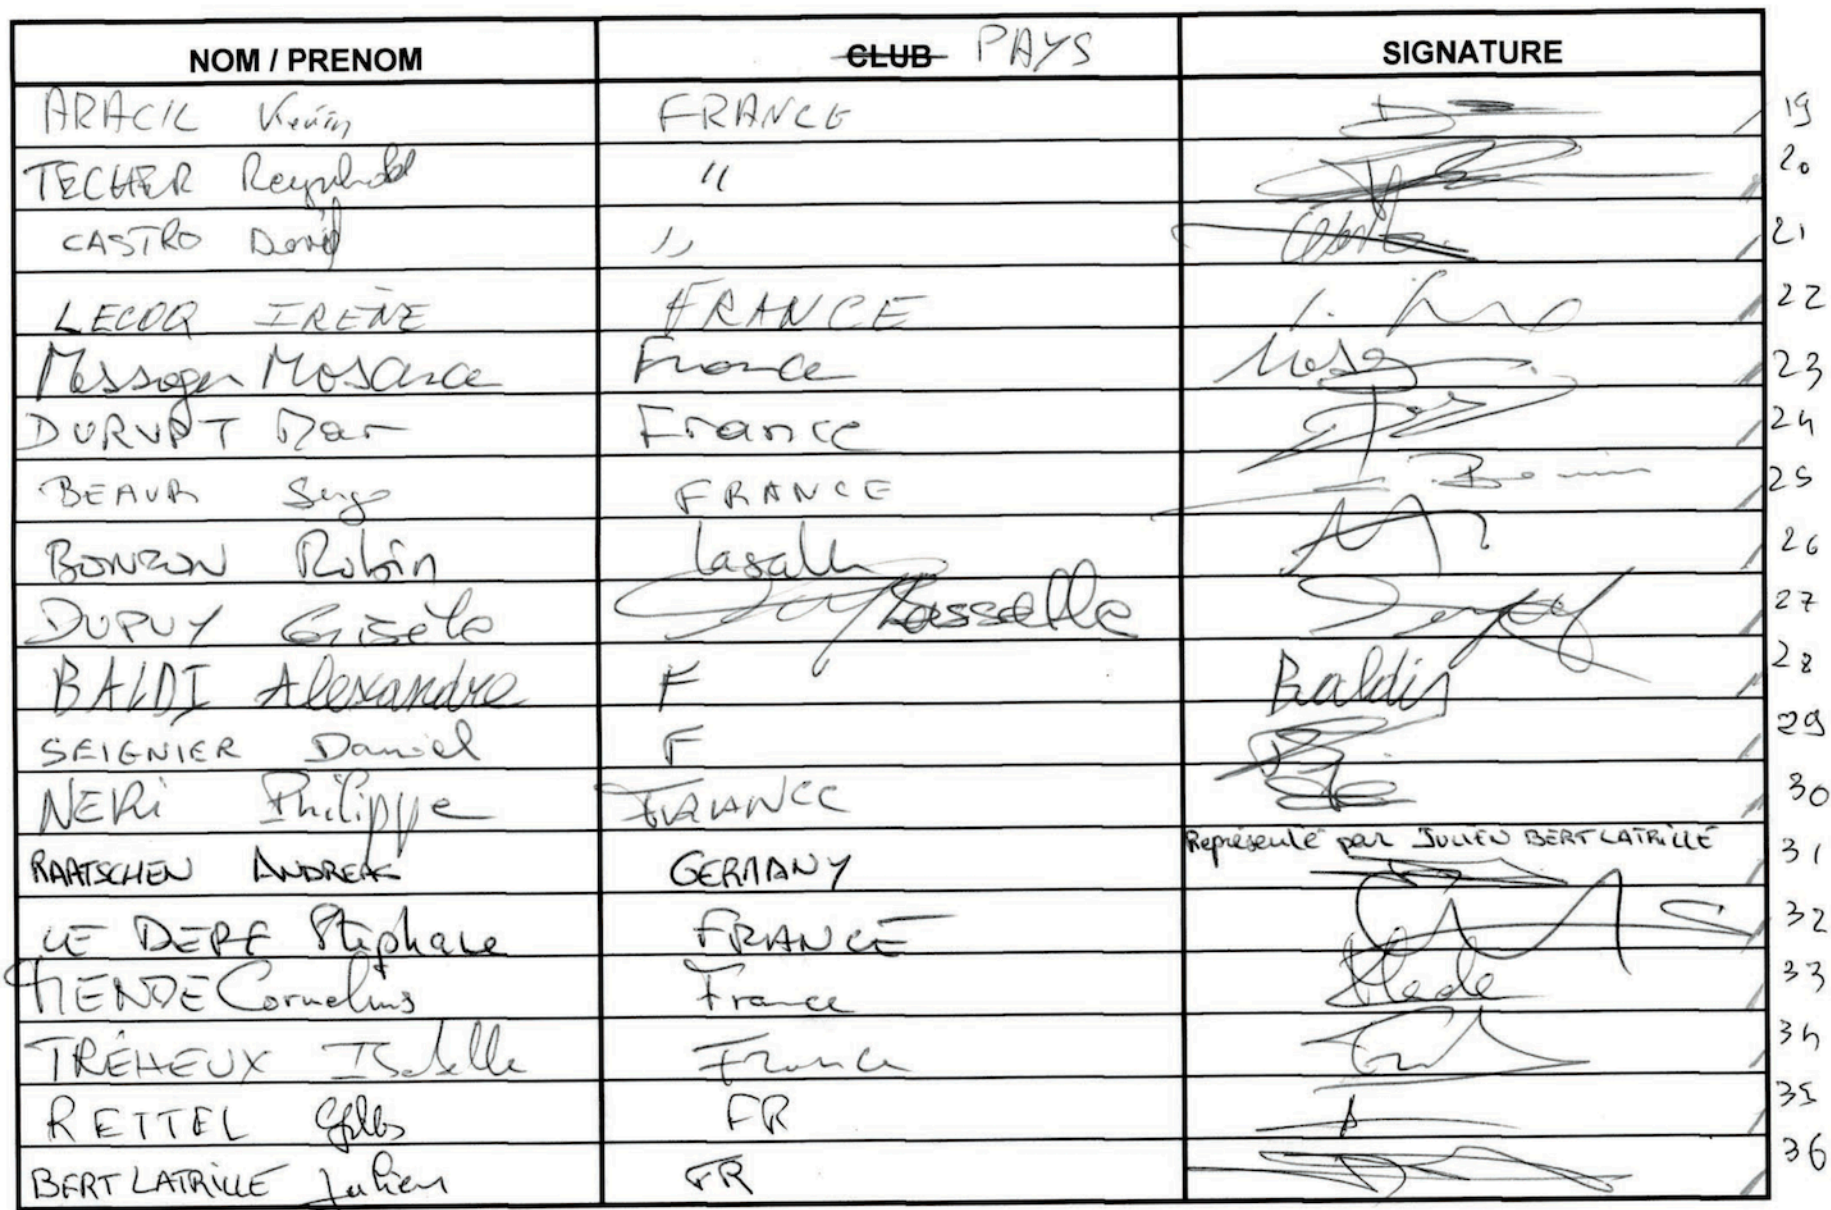 NOM / PRENOM CLUB PAYS SIGNATURE
ARACIL Kevin FRANCE 19
TECHER Reynhold " 20
CASTRO David " 21
LECOQ IRÈNE FRANCE 22
Messager France 23
DURUPT Marc France 24
BEAUR Serge FRANCE 25
BONZON Robin Lasalle 26
DUPUY Gisèle Lasselle 27
BALDI Alexandre F Baldi 28
SEIGNIER Daniel F 29
NERi Philippe FRANCE 30
RAATSCHEN ANDREAS GERMANY Représenté par JULIEN BERT LATRILLE 31
LE DEPF Stéphane FRANCE 32
HENDE Cornelius France 33
TRÉHEUX Isabelle France 34
RETTEL Gilles FR 35
BERT LATRILLE Julien FR 36